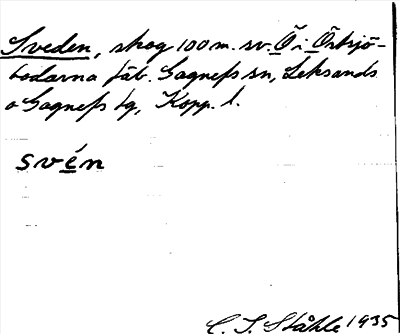 Sveden, skog 100 m. sv. Ö i Östsjö-
bodarna fäb. Gagnefs sn, Leksands
o Gagnefs tg, Kopp. l.
svén
C. I. Ståhle 1935